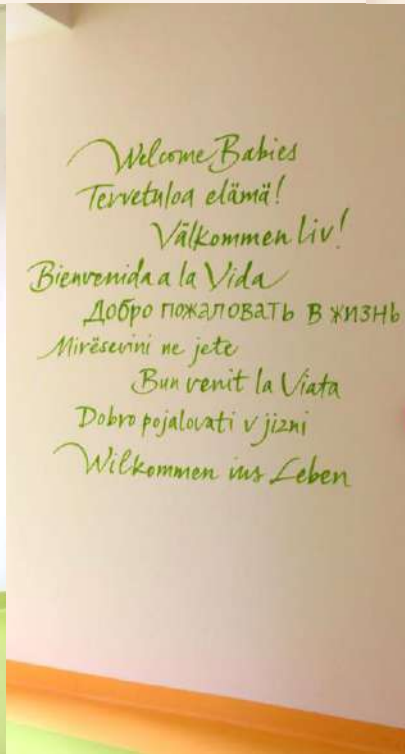 Welcome Babies
Tervetuloa elämä!
Välkommen Liv!
Bienvenida a la Vida
Добро пожаловать в жизнь
Mirësevini ne jete
Bun venit la Viata
Dobro pojalovati v jizni
Wilkommen ins Leben